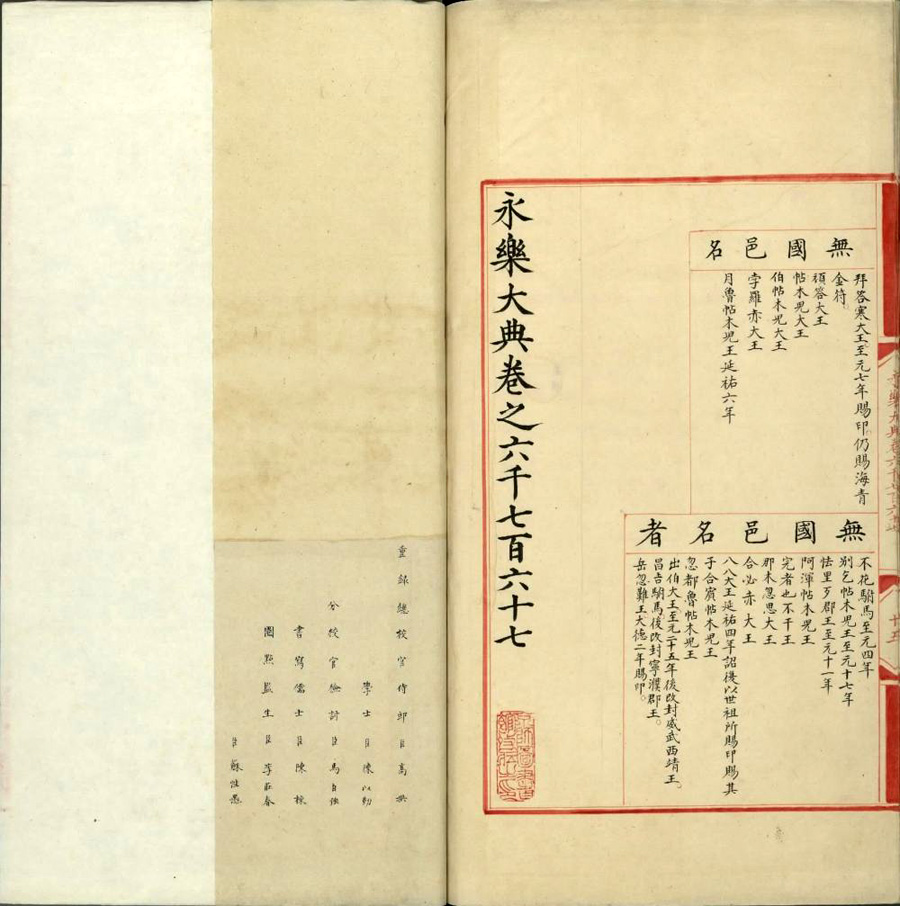 無國邑名
拜荅寒大王至元七年賜印仍賜海青
金符。
頑荅大王
帖木兒大王
伯帖木兒大王
孛羅赤大王
月魯帖木兒王延祐六年
無國邑名者
不花駙馬至元四年
別乞帖木兒王至元十七年
怯里歹郡王至元十一年
阿渾帖木兒王
完者也不干王
郡木忽思大王
合必赤大王
八八大王延祐四年詔後以世祖所賜印賜其
子合賓帖木兒王
忽都魯帖木兒王
出伯大王至元二十五年後改封威武西靖王。
昌吉駙馬後改封寧濮郡王。
岳忽難王大德二年賜印。
永樂大典卷之六千七百六十七
京師圖書館
永樂大典卷六千七百六十七
十五
重錄總校官侍郎臣高拱
學士臣陳以勤
分校官檢討臣馬自強
書寫儒士臣陳棟
圈點監生臣李莊春
臣蘇性愚